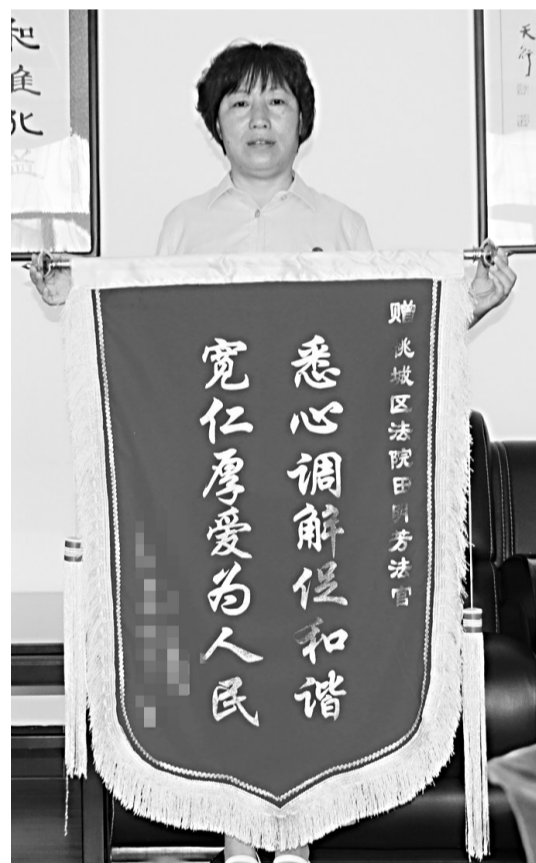 赠桃城区法院田明芳法官
悉心调解促和谐
宽仁厚爱为人民
和
天行